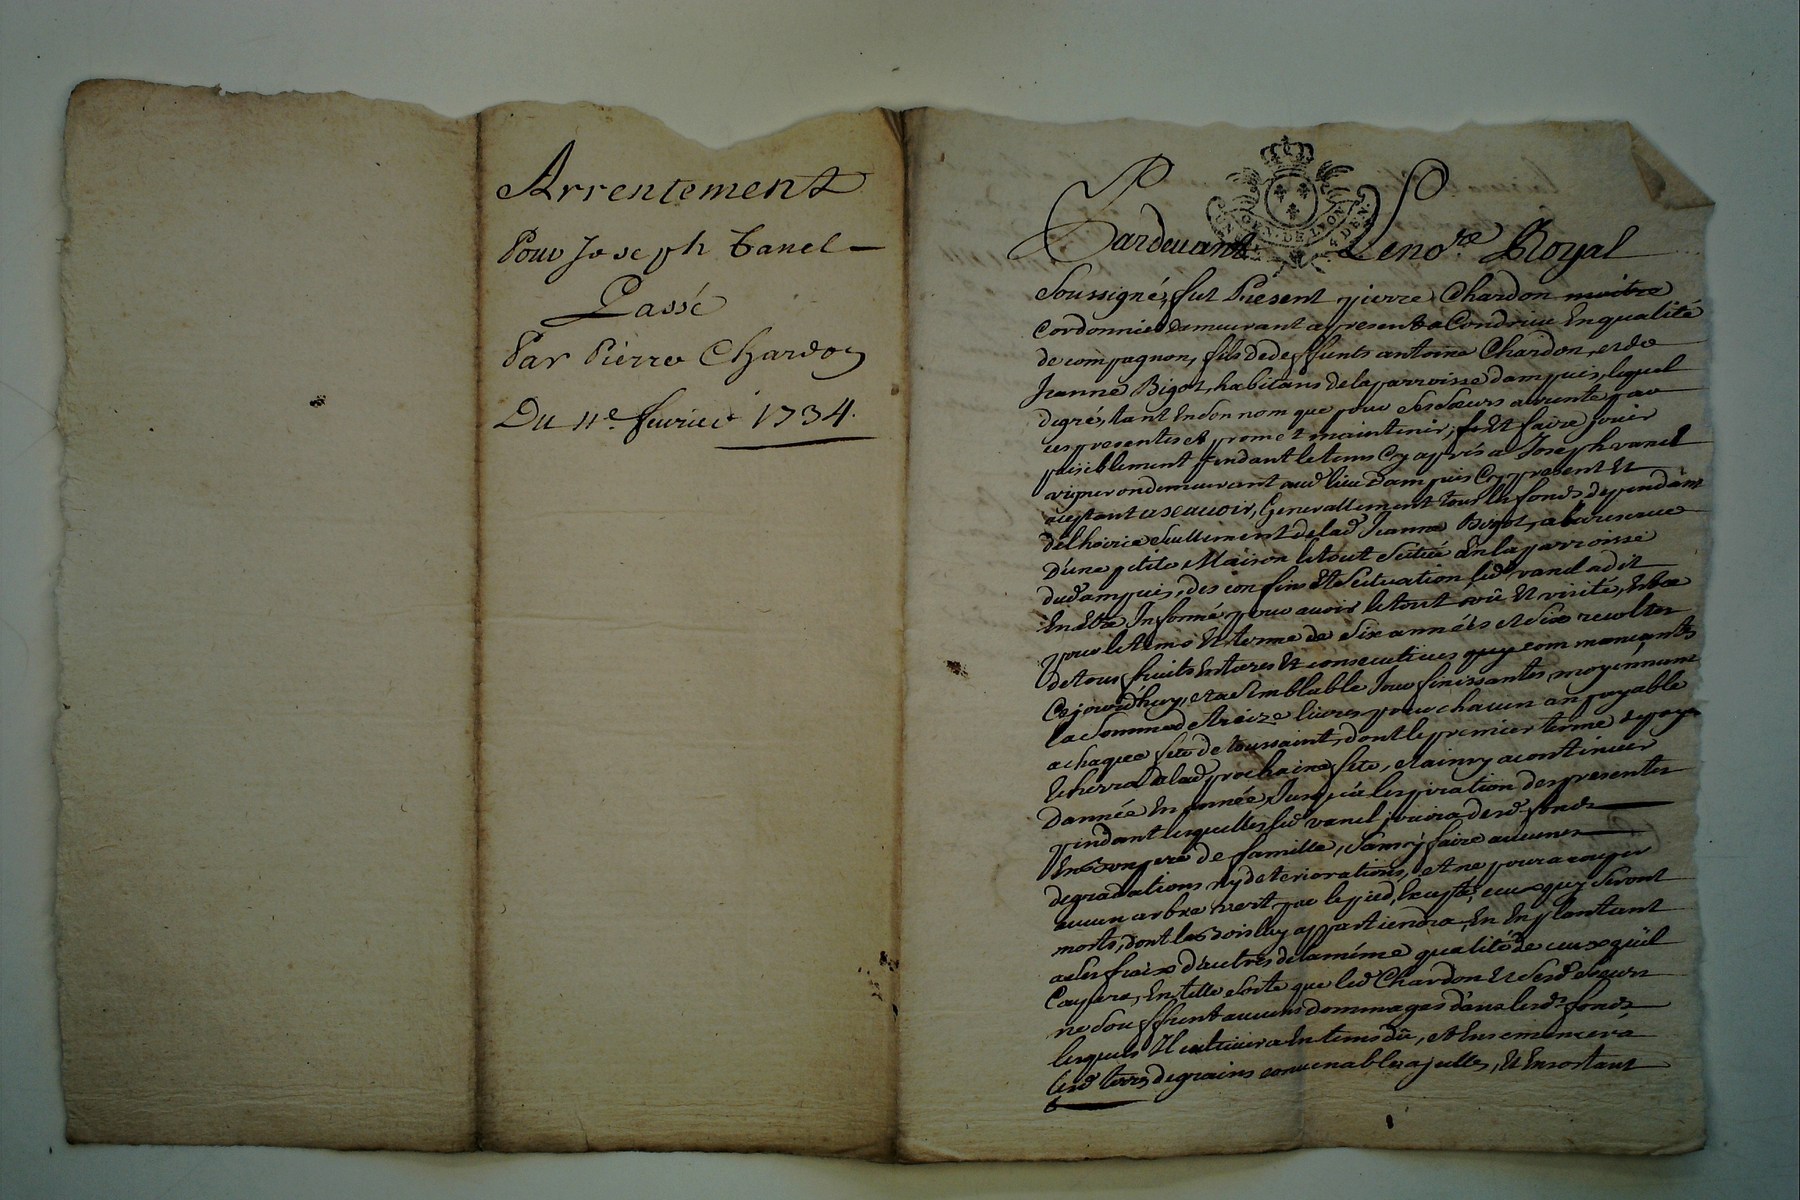 Arrentement
Pour Joseph Vanel
Passé
Par Pierre Chardon
Du 11e. fevrier 1734.
GEN. DE LYON
4 DEN.
Pardevant Le nore. Royal
Soussigné, fut Présent pierre Chardon maitre
Cordonnier demeurant a present a Condrieu En qualité
de compagnon, fils de deffunts antoine Chardon, et de
Jeanne Bigot, habitans de la parroisse dampuis, lequel
degré, tant En son nom que pour Ses Sœurs a arenté par
ces presentes et promet maintenir, et faire jouir
paisiblement pendant le tems Cy aprés a Joseph vanel
vigneron demeurant aud. lieu dampuis Cy present Et
aceptant a scavoir, Generallement tous les fonds dependans
de lhoirie seullement de lad. Jeanne Bigot, a la reserve
D'une petite Maison le tout Scitué En la parroisse
dud. ampuis, des confins Et Scituation led. vanel a dit
En Etre Informé pour avoir le tout vû Et visité, Et ce
pour le tems Et terme de Six années et Six recoltes
de tous fruits Entieres Et consecutives quy commancantes
Ce jourd'huy, et a Semblable Jour finissantes, moyennant
la Somme de treize livres pour chacun an payable
a chaque feste de toussaints, dont le premier terme de paye
Echerra a lad. prochaine fete, et ainsy a continuer
Dannée En année, Jusqu'a lexpiration des presentes
pendant lesquelles led. vanel jouira desd. fonds
En bon pere de famille, Sans y faire aucunes
degradations ny deteriorations, et ne pourra couper
aucun arbre vert par le pied, Excepté, ceux quy Seront
morts, dont le Bois luy appartiendra, En En plantant
a Ses fraix d'autres de la même qualité de ceux qu'il
Coupera, En telle Sorte que led. Chardon Et Sesd. Sœurs
ne Souffrent aucuns dommages dans lesd. fonds
lesquels Il cultivera En tems dû, et Ensemencera
lesd. terres de grains convenables a jcelles, Et En sortant